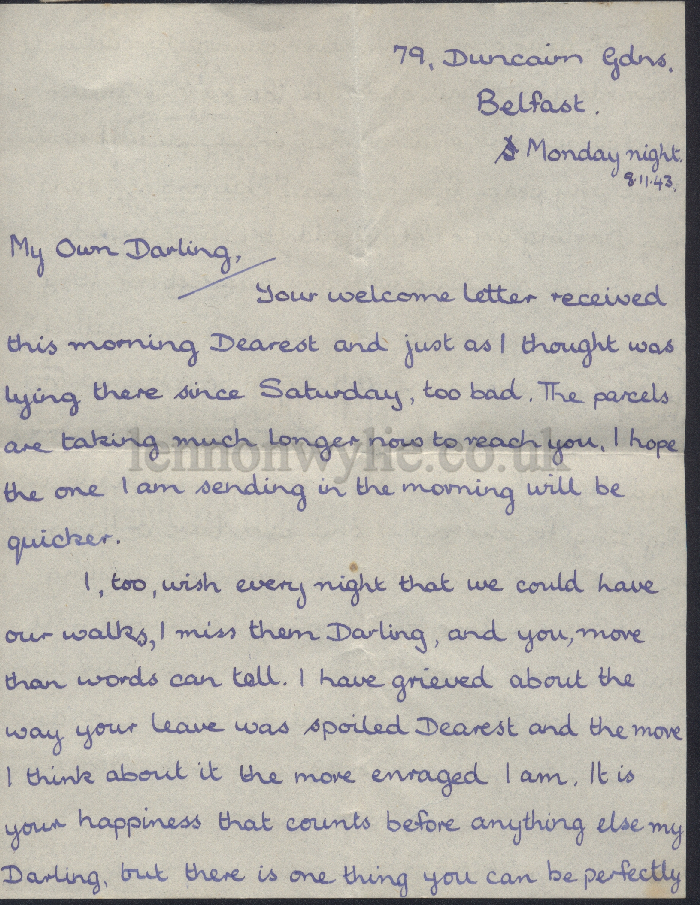 79, Duncairn Gdns,
Belfast.
Monday night.
8.11.43.
My Own Darling,
Your welcome letter received
this morning Dearest and just as I thought was
lying there since Saturday, too bad. The parcels
are taking much longer now to reach you, I hope
lennonwylie.co.uk
the one I am sending in the morning will be
quicker.
I, too, wish every night that we could have
our walks, I miss them Darling, and you, more
than words can tell. I have grieved about the
way your leave was spoiled Dearest and the more
I think about it the more enraged I am. It is
your happiness that counts before anything else my
Darling, but there is one thing you can be perfectly